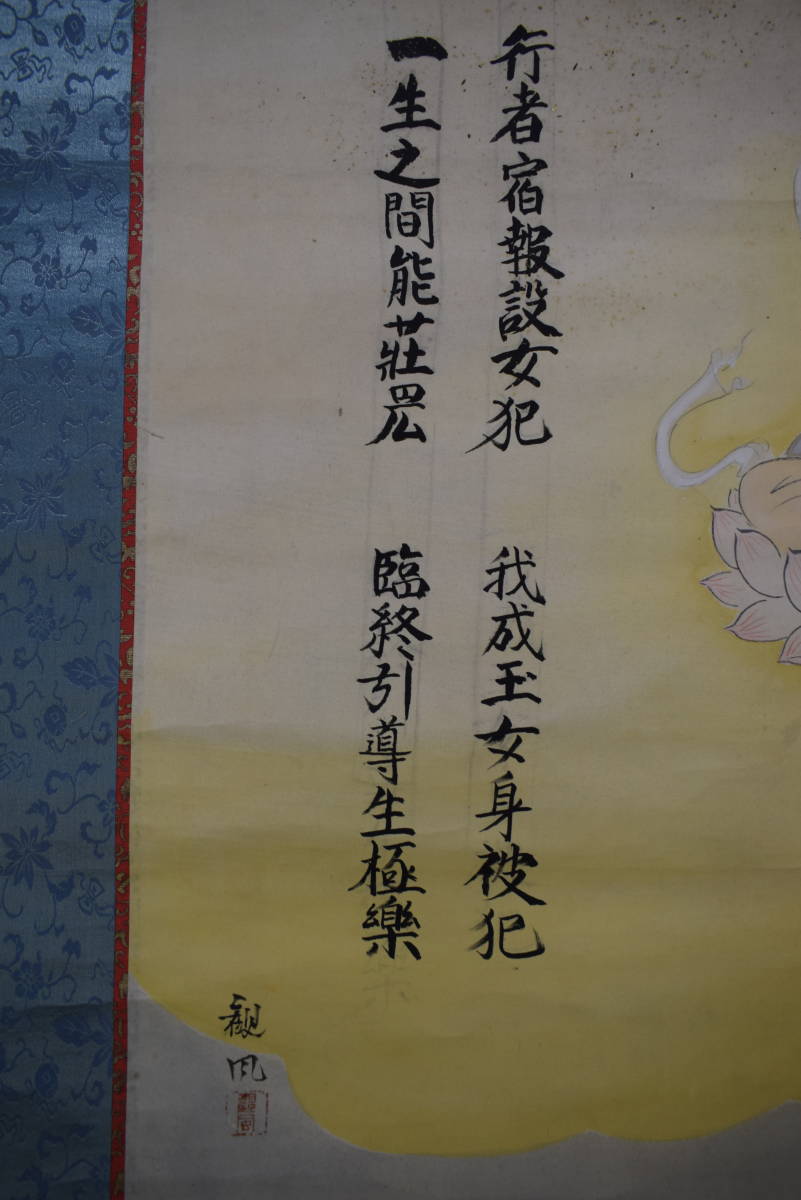 行者宿報設女犯 我成玉女身被犯
一生之間能莊嚴 臨終引導生極樂
觀風